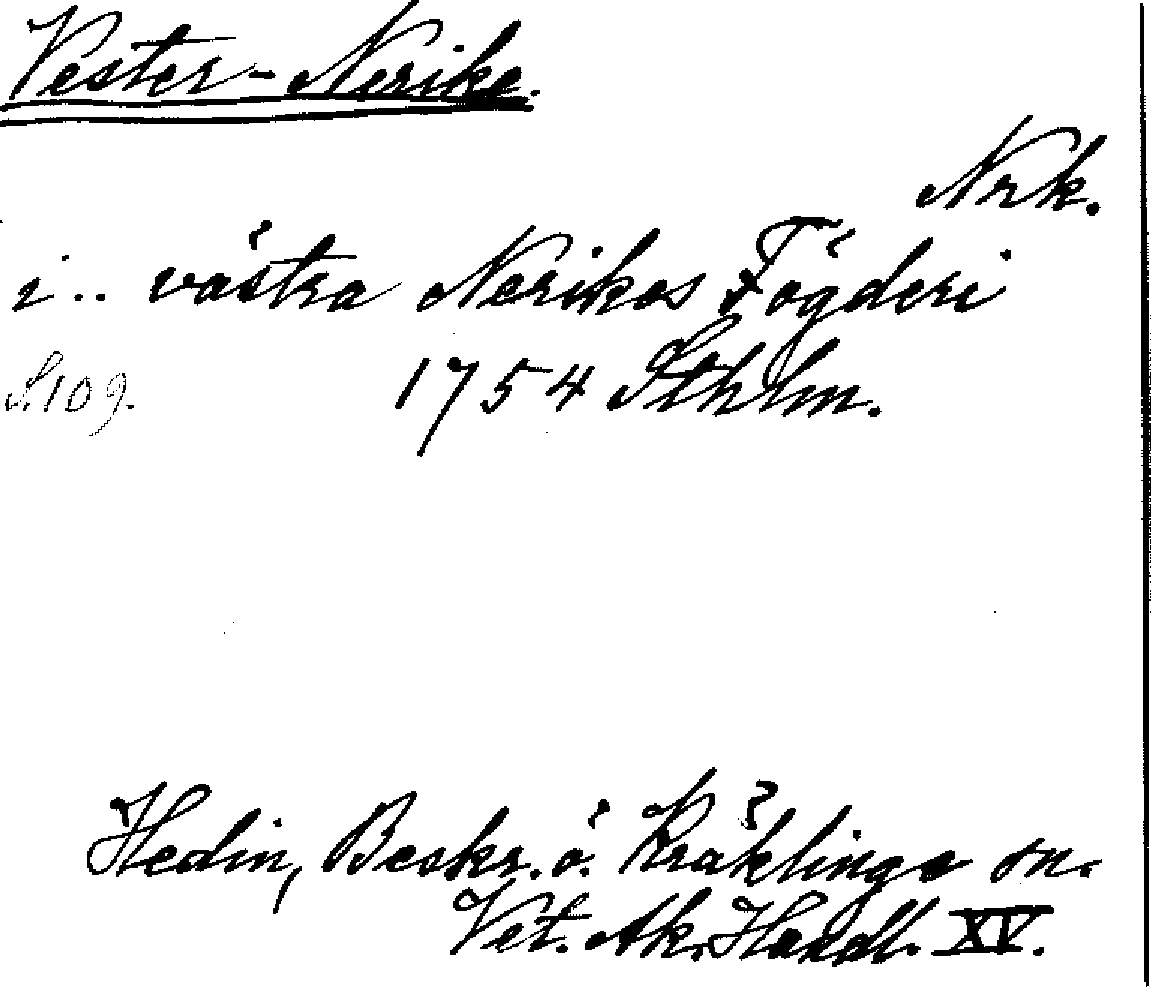 Vester-Nerike.
Nrk.
i.. västra Nerikes Fögderi
S.109. 1754 Sthlm.
Hedin, Beskr. ö. Kräklinge sn.
Vet. Ak. Handl. XV.